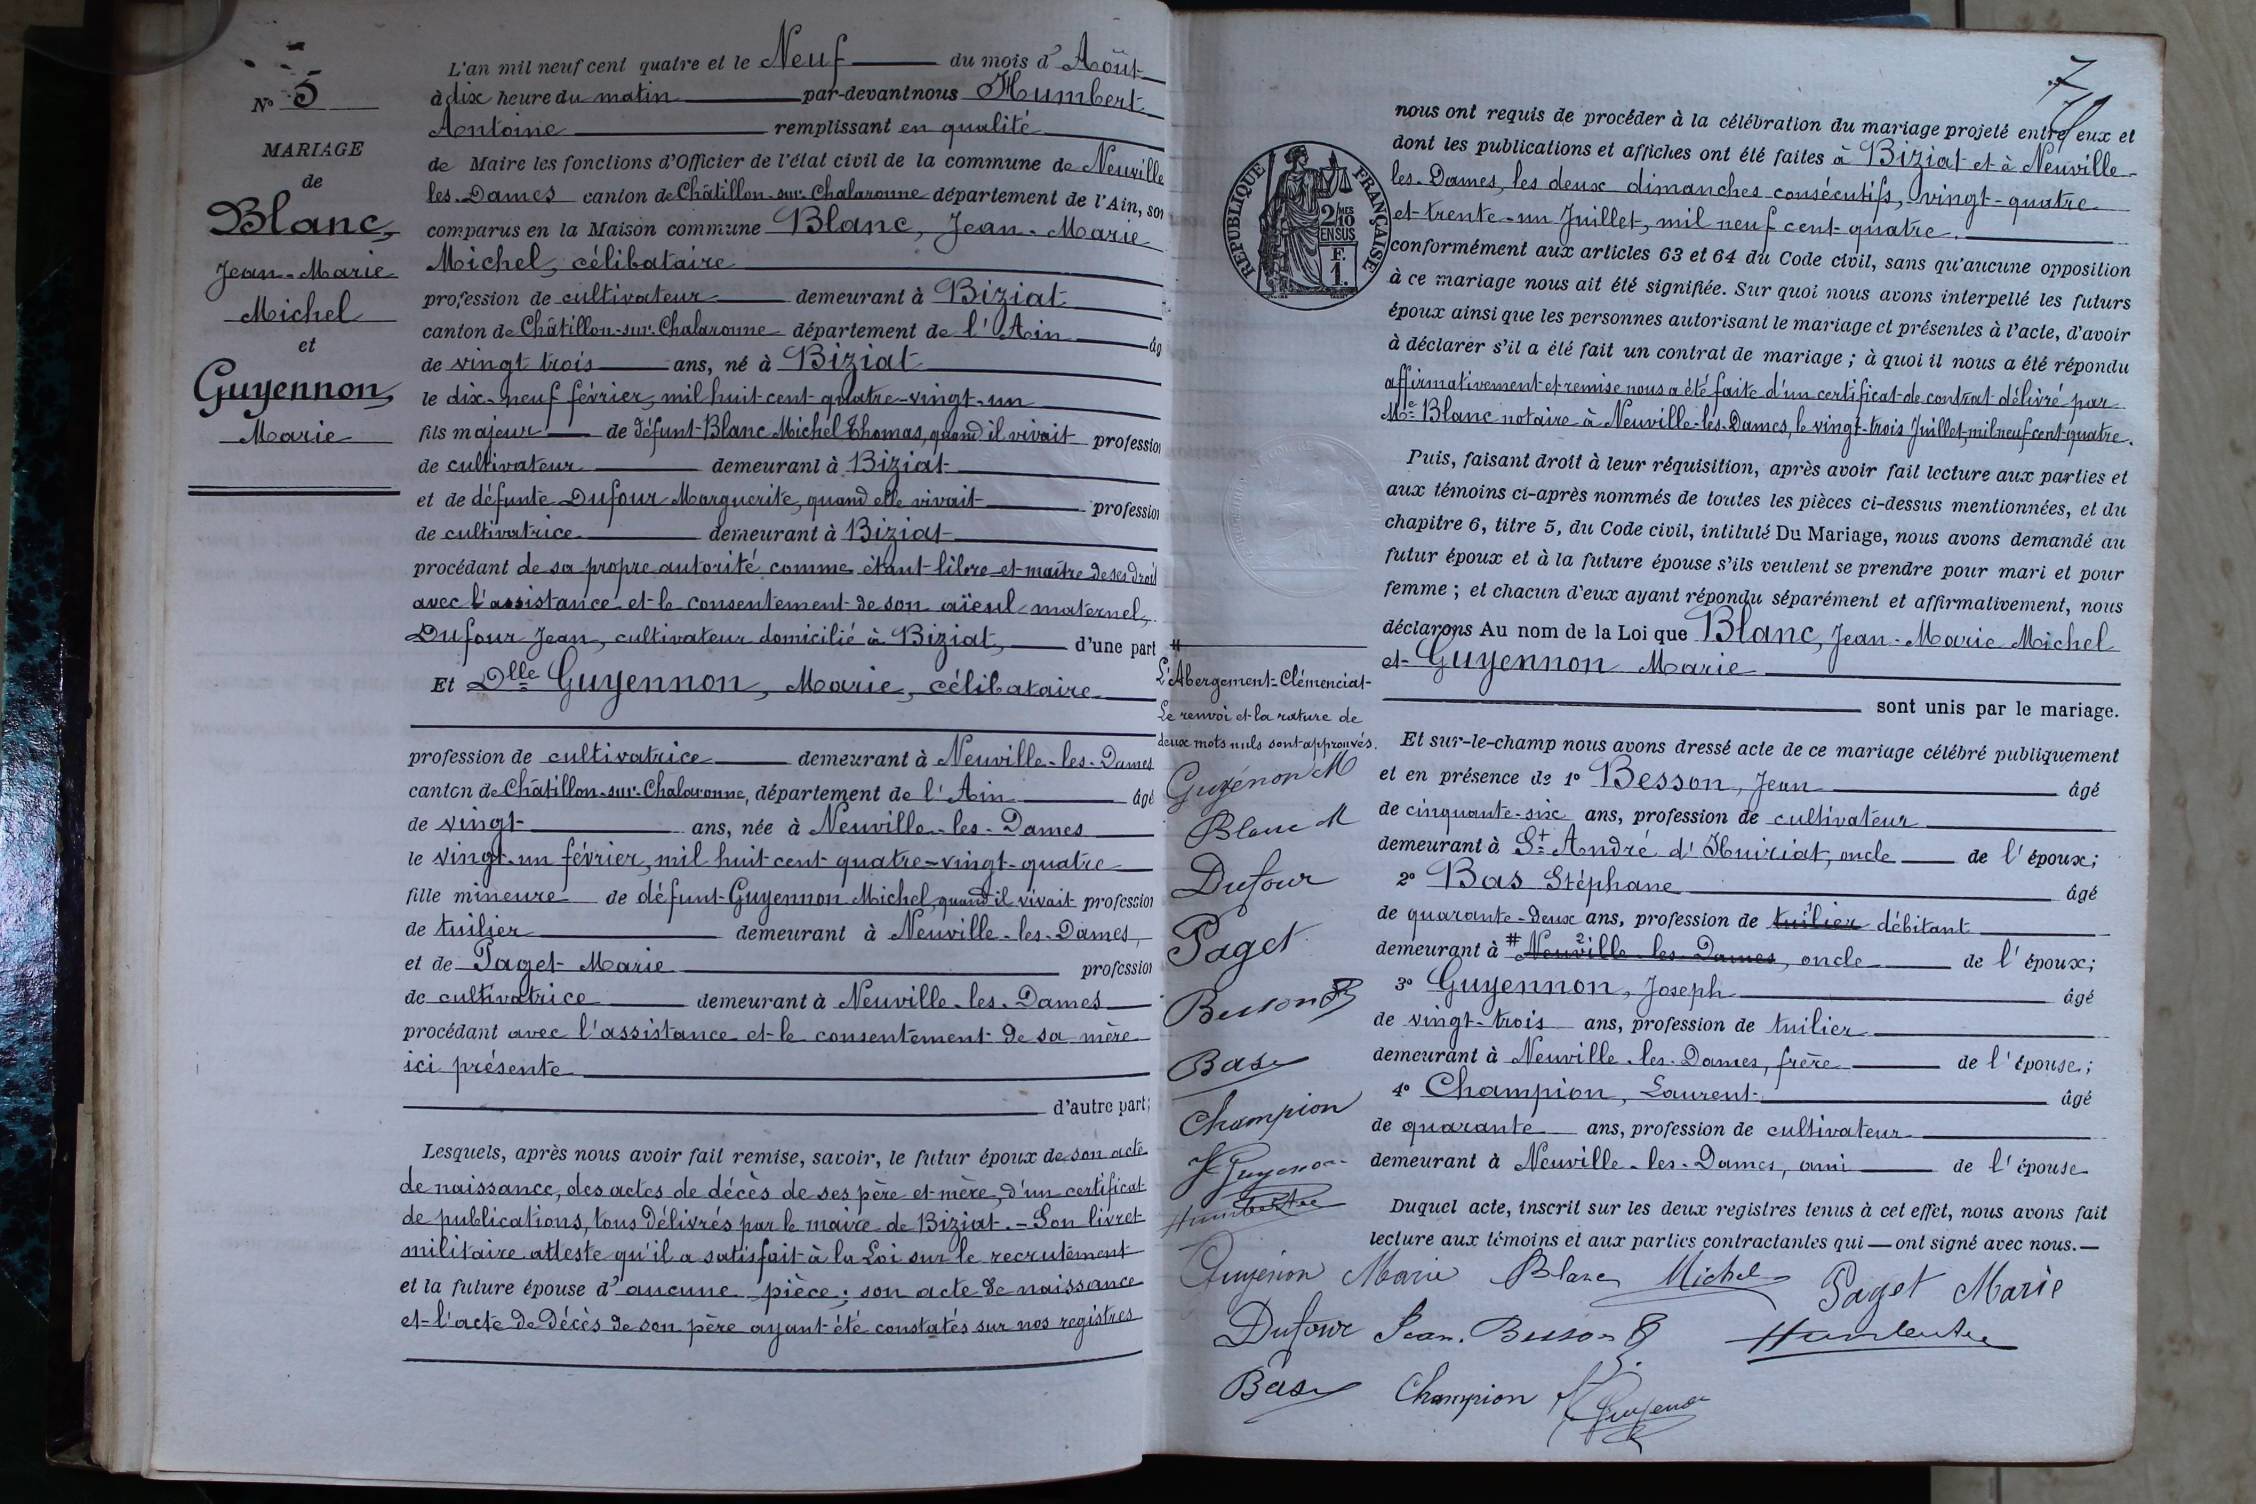 N° 5
MARIAGE
de
Blanc,
Jean-Marie
Michel
et
Guyennon,
Marie
L'an mil neuf cent quatre et le Neuf du mois d' Août
à dix heure du matin par-devant nous Humbert
Antoine remplissant en qualité
de Maire les fonctions d'Officier de l'état civil de la commune de Neuville
les-Dames canton de Châtillon-sur-Chalaronne département de l'Ain, son
comparus en la Maison commune Blanc, Jean-Marie
Michel, célibataire
profession de cultivateur demeurant à Biziat
canton de Châtillon-sur-Chalaronne département de l'Ain âg
de vingt trois ans, né à Biziat
le dix-neuf février, mil huit cent quatre-vingt-un
fils majeur de défunt Blanc Michel Thomas, quand il vivait profession
de cultivateur demeurant à Biziat
et de défunte Dufour Marguerite, quand elle vivait profession
de cultivatrice demeurant à Biziat
procédant de sa propre autorité comme étant libre et maître de ses droit
avec l'assistance et le consentement de son aïeul maternel,
Dufour Jean, cultivateur domicilié à Biziat, d'une part
Et Dlle Guyennon, Marie, célibataire
profession de cultivatrice demeurant à Neuville-les-Dames
canton de Châtillon-sur-Chalaronne, département de l'Ain âgé
de vingt ans, née à Neuville-les-Dames
le vingt-un février, mil huit cent quatre-vingt-quatre
fille mineure de défunt Guyennon Michel, quand il vivait profession
de tuilier demeurant à Neuville-les-Dames,
et de Paget Marie profession
de cultivatrice demeurant à Neuville-les-Dames
procédant avec l'assistance et le consentement de sa mère
ici présente
d'autre part;
Lesquels, après nous avoir fait remise, savoir, le futur époux de son acte
de naissance, des actes de décès de ses père et mère, d'un certificat
de publications, tous délivrés par le maire de Biziat. - Son livret
militaire atteste qu'il a satisfait à la Loi sur le recrutement
et la future épouse d'aucune pièce; son acte de naissance
et l'acte de décès de son père ayant été constatés sur nos registres
7
RÉPUBLIQUE FRANÇAISE
2/10 MES
EN SUS
F.
1.
nous ont requis de procéder à la célébration du mariage projeté entre eux et
dont les publications et affiches ont été faites à Biziat et à Neuville-
les-Dames, les deux dimanches consécutifs, vingt-quatre
et trente-un Juillet, mil neuf cent quatre.
conformément aux articles 63 et 64 du Code civil, sans qu'aucune opposition
à ce mariage nous ait été signifiée. Sur quoi nous avons interpellé les futurs
époux ainsi que les personnes autorisant le mariage et présentes à l'acte, d'avoir
à déclarer s'il a été fait un contrat de mariage; à quoi il nous a été répondu
affirmativement et remise nous a été faite d'un certificat de contrat délivré par
Me Blanc notaire à Neuville-les-Dames, le vingt-trois Juillet, mil neuf cent quatre.
Puis, faisant droit à leur réquisition, après avoir fait lecture aux parties et
aux témoins ci-après nommés de toutes les pièces ci-dessus mentionnées, et du
chapitre 6, titre 5, du Code civil, intitulé Du Mariage, nous avons demandé au
futur époux et à la future épouse s'ils veulent se prendre pour mari et pour
femme; et chacun d'eux ayant répondu séparément et affirmativement, nous
déclarons Au nom de la Loi que Blanc, Jean-Marie Michel
et Guyennon Marie
sont unis par le mariage.
Et sur-le-champ nous avons dressé acte de ce mariage célébré publiquement
et en présence de 1° Besson, Jean âgé
de cinquante-six ans, profession de cultivateur
demeurant à St André d'Huiriat, oncle de l'époux;
2° Bas Stéphane âgé
de quarante-deux ans, profession de tuilier débitant
demeurant à # Neuville-les-Dames, oncle de l'époux;
3° Guyennon, Joseph âgé
de vingt-trois ans, profession de tuilier
demeurant à Neuville-les-Dames, frère de l'épouse;
4° Champion, Laurent âgé
de quarante ans, profession de cultivateur
demeurant à Neuville-les-Dames, ami de l'épouse
Duquel acte, inscrit sur les deux registres tenus à cet effet, nous avons fait
lecture aux témoins et aux parties contractantes qui ont signé avec nous.
#
L'Abergement-Clémenciat
Le renvoi et la rature de
deux mots nuls sont approuvés.
Guyénon M
Blanc M
Dufour
Paget
Besson
Bas
Champion
J Guyenon
Humbert Ae
Guyénon Marie Blanc Michel Paget Marie
Dufour Jean. Besson Humbert Ae
Bas Champion J Guyenon